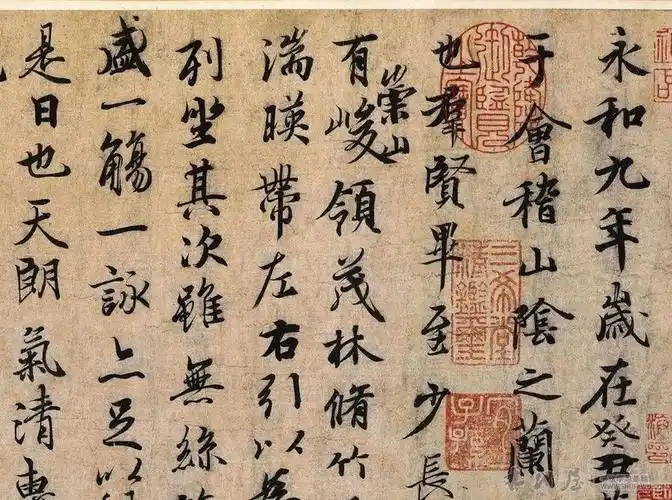 永和九年歲在癸丑
于會稽山陰之蘭
也羣賢畢至少長
有崇山峻領茂林脩竹
湍暎帶左右引以
列坐其次雖無絲
盛一觴一詠亦足以
是日也天朗氣清惠
三希堂精鑑璽
宜子孫